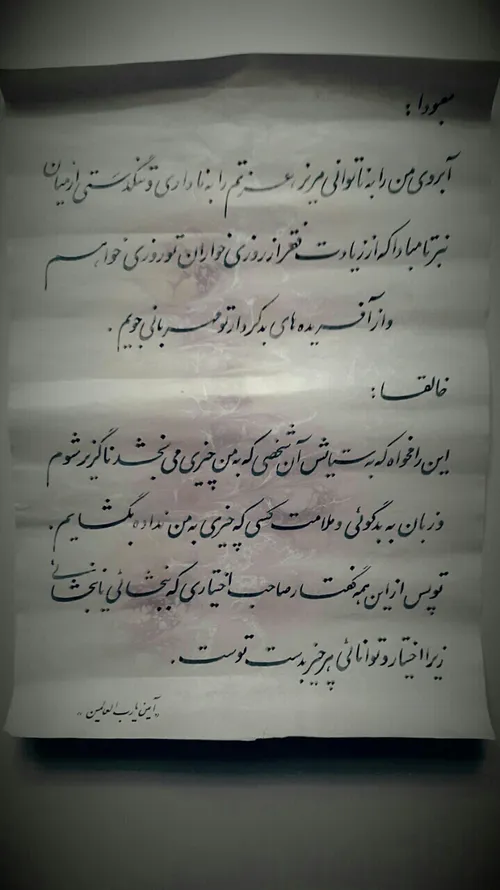 معبودا :
آبروی من را به ناتوانی مریز ، عزتم را به ناداری و تنگدستی از میان
نبر تا مبادا که از زیادت فقر از روزی خواران تو روزی خواهم
و از آفریده های بدکردار تو مهربانی جویم .
خالقا :
این را مخواه که به ستایش آن شخصی که به من چیزی می بخشد ناگزیر شوم
و زبان به بدگوئی و ملامت کسی که چیزی به من نداده بگشایم .
تو پس از این همه گفتار صاحب اختیاری که ببخشائی یا نبخشائی
زیرا اختیار و توانائی هر چیز بدست توست .
« آمین یا رب العالمین »